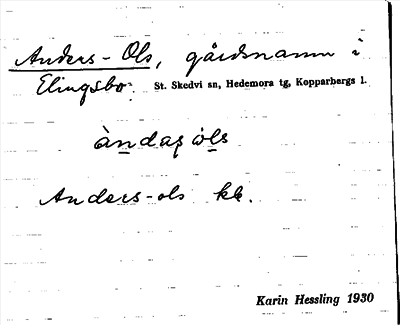 Anders-Ols, gårdsnamn i
Elingsbo. St. Skedvi sn, Hedemora tg, Kopparbergs l.
àndaș òls
Anders-ols kb.
Karin Hessling 1930